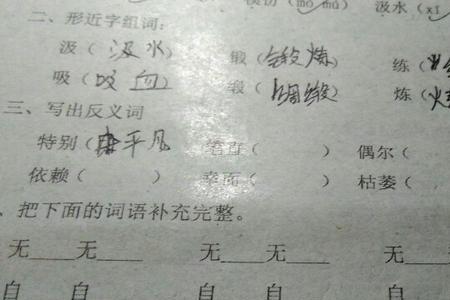 (mó mú) 汲水 (xī
二、形近字组词:
汲( 汲水 ) 锻(锻炼) 练(
吸(吸血) 缎(绸缎) 炼(
三、写出反义词
特别(平凡 笔直( ) 偶尔(
依赖( ) 幸而( ) 枯萎(
、把下面的词语补充完整。
无____无____ 无____无____ 无____
自 自 自 自 自